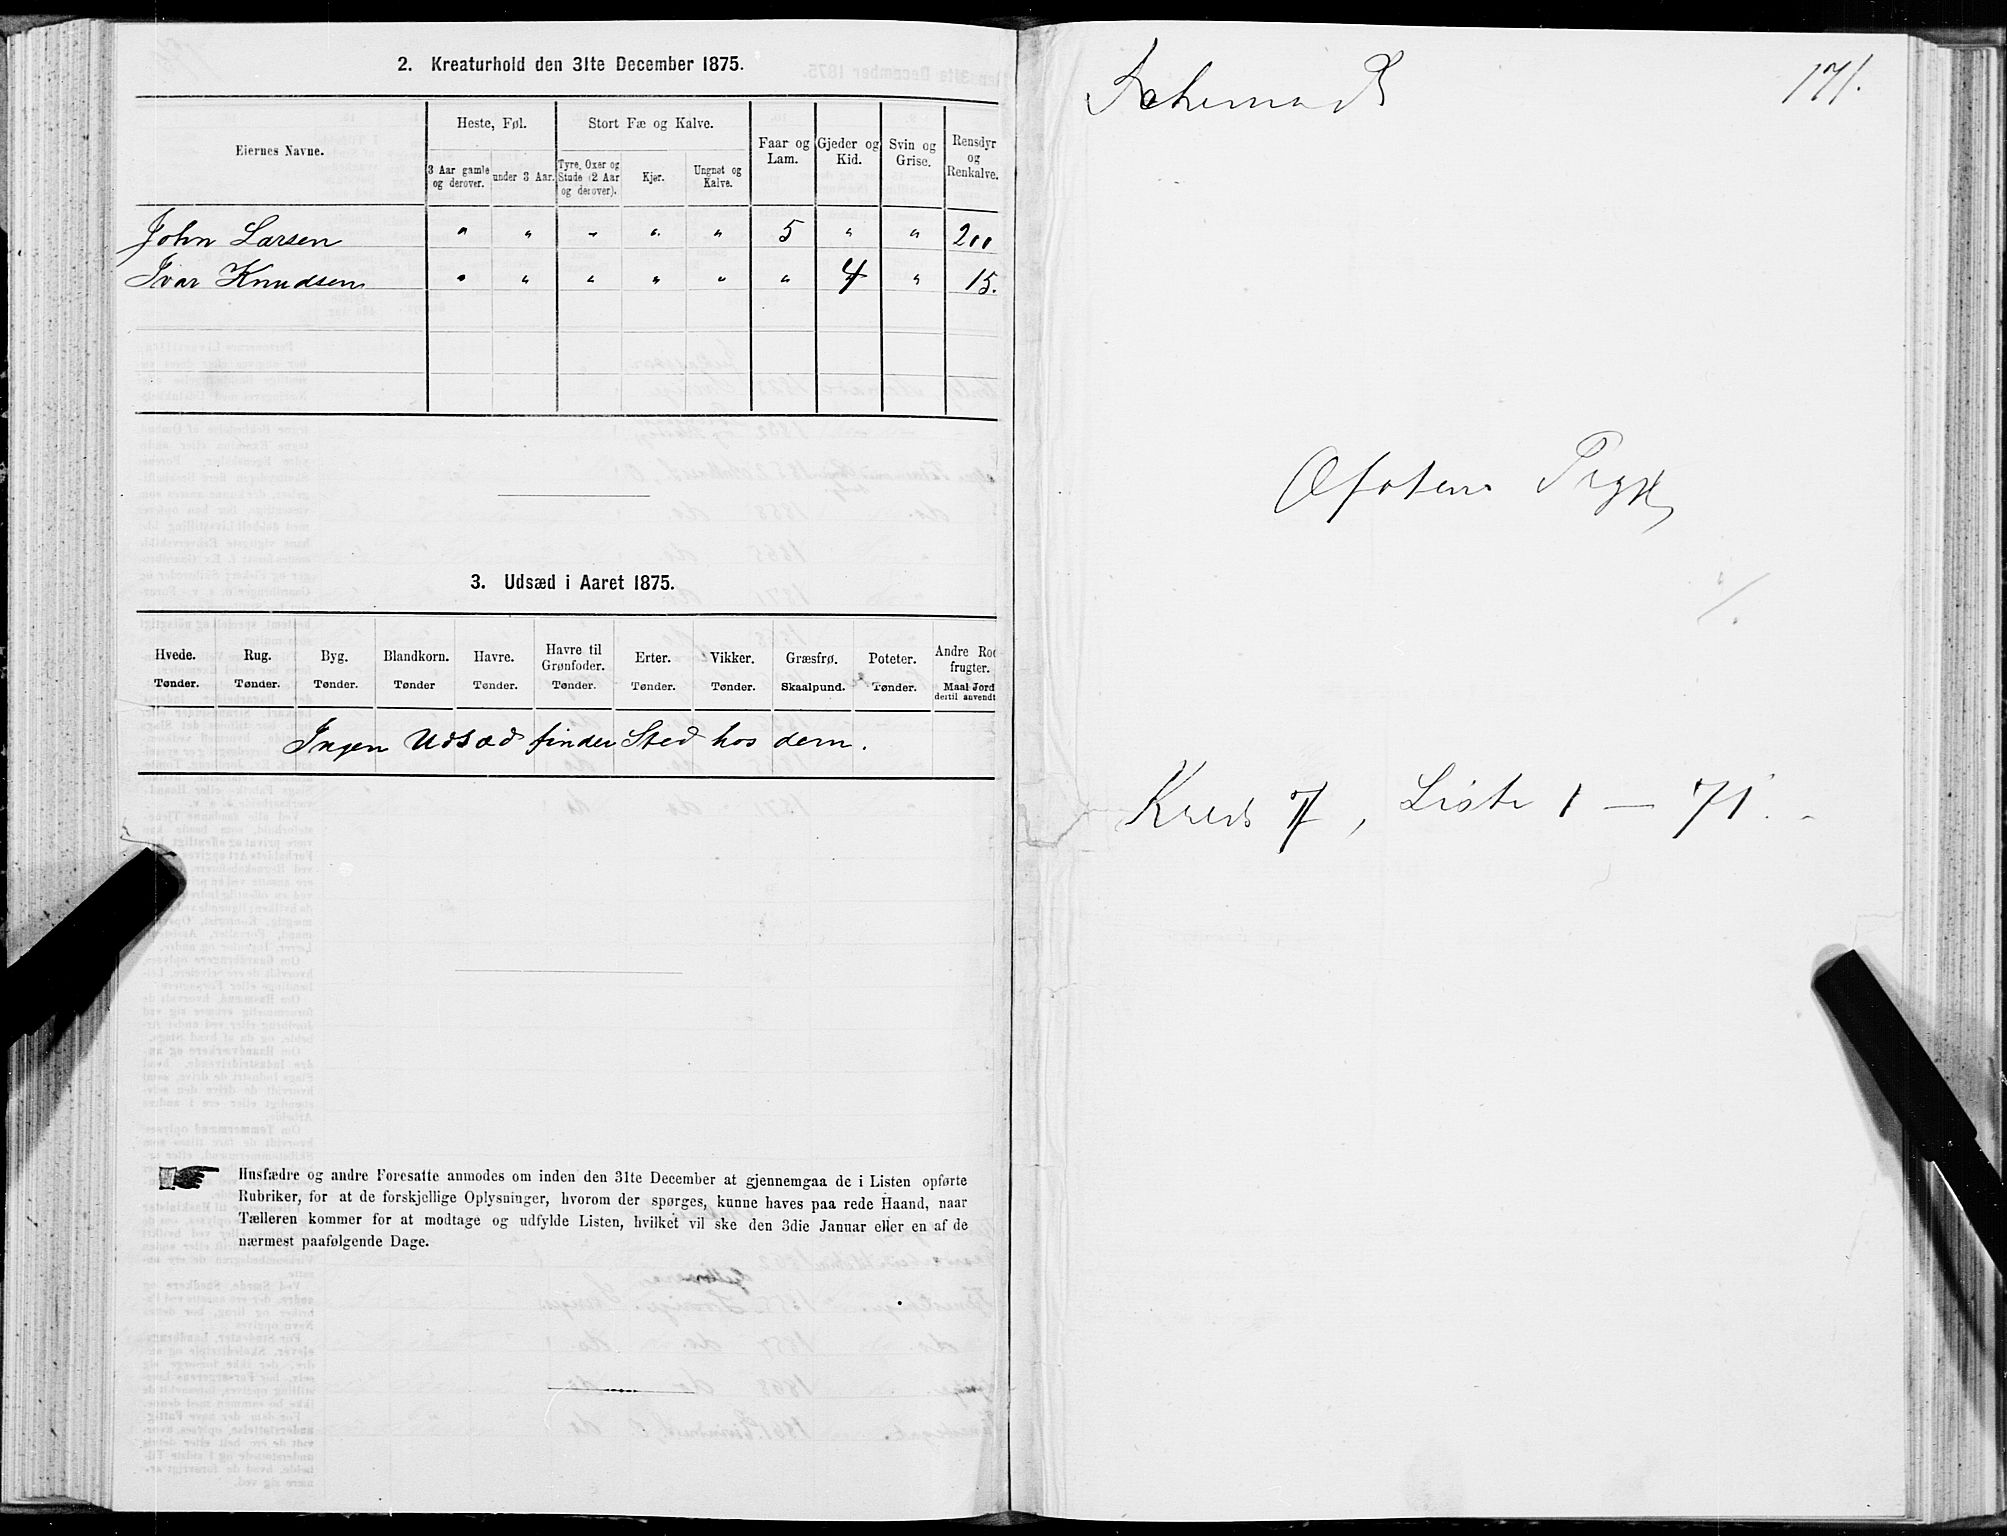 2. Kreaturhold den 31te December 1875.
Eiernes Navne.
Heste, Føl.
Stort Fæ og Kalve.
Faar og Lam.
Gjeder og Kid.
Svin og Grise.
Rensdyr og Renkalve.
3 Aar gamle og derover.
under 3 Aar.
Tyre, Oxer og Stude (2 Aar og derover).
Kjør.
Ungnøt og Kalve.
John Larsen " " " " " 5 " " 200
Ivar Knudsen " " " " " " 4 " 15.
3. Udsæd i Aaret 1875.
Hvede. Rug. Byg. Blandkorn. Havre. Havre til Grønfoder. Erter. Vikker. Græsfrø. Poteter. Andre Rod frugter.
Tønder. Tønder. Tønder. Tønder Tønder. Tønder. Tønder. Tønder. Skaalpund. Tønder. Maal Jord dertil anvendt
Ingen Udsæd finder Sted hos dem.
Husfædre og andre Foresatte anmodes om inden den 31te December at gjennemgaa de i Listen opførte
Rubriker, for at de forskjellige Oplysninger, hvorom der spørges, kunne haves paa rede Haand, naar
Tælleren kommer for at modtage og udfylde Listen, hvilket vil ske den 3die Januar eller en af de
nærmest paafølgende Dage.
Schema
171.
Ofoten Prgjd
Kreds 7, Liste 1 — 71.